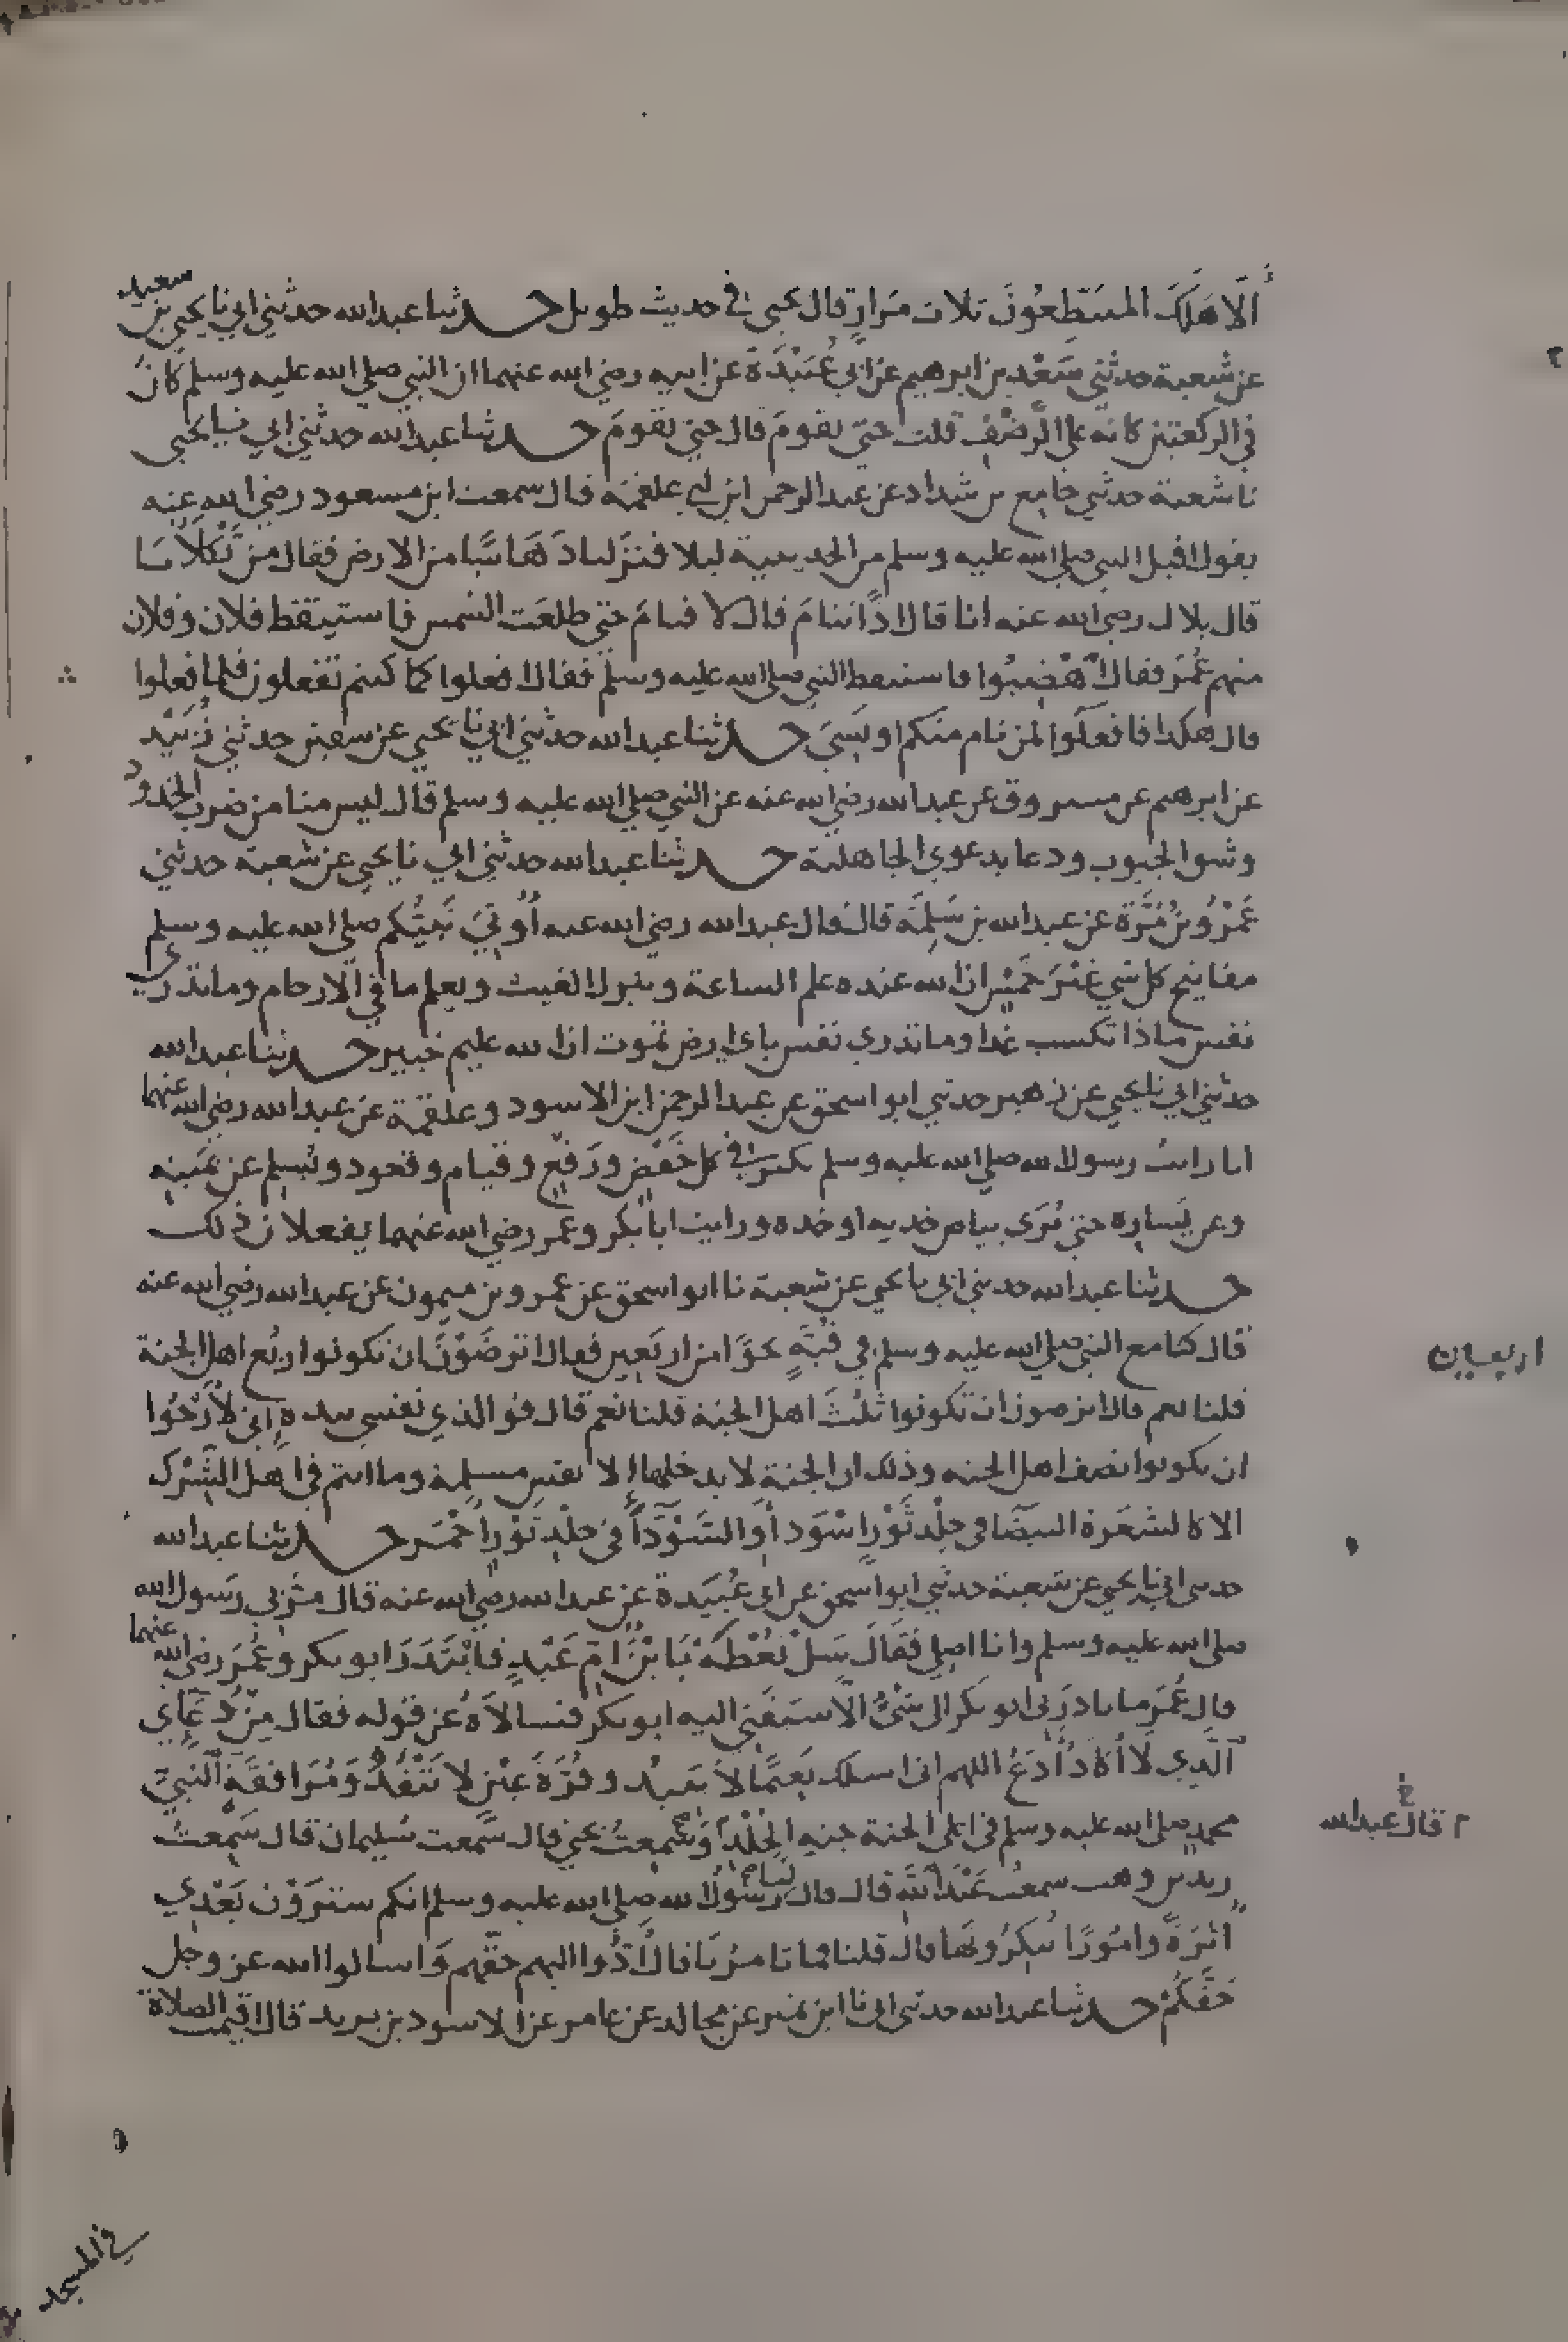 ألا هَلَكَ المتنَطِّعُونَ ثلاث مَرارٍ قال يحيى في حديث طويل حدثنا عبدالله حدثني ابي نا يحيى بن سعيد
عن شعبة حدثني سَعْد بن ابرهيم عن ابي عُبَيْدَة عن ابيه رضي الله عنهما ان النبي صلى الله عليه وسلم كانَ
في الركعتين كانه على الرَّضْفِ قلت حتى يقومَ قال حتى يقومَ حدثنا عبدالله حدثني ابي نا يحيى
نا شعبة حدثني جامع بن شداد عن عبدالرحمن ابن ابي علقمة قال سمعت ابن مسعود رضي الله عنه
يقول اقبل النبي صلى الله عليه وسلم من الحديبية ليلا فنزلنا دَهَاسًا من الارض فقال من يَكْلَأُنَا
قال بلال رضي الله عنه انا قال اذًا تنامَ قال لا فنامَ حتى طلعَت الشمس فاستيقظ فلان وفلان
منهم عُمَرُ فقال اهْضِبُوا فاستيقظ النبي صلى الله عليه وسلم فقال افعلوا كما كنتم تفعلون فلما فعلوا
قال هكذا فافعلُوا لمن نام منكم او نَسِيَ حدثنا عبدالله حدثني ابي نا يحيى عن سفين حدثني زُبَيْد
عن ابرهيم عن مسروق عن عبدالله رضي الله عنه عن النبي صلى الله عليه وسلم قال ليس منا من ضرب الخدود
وشق الجيوب ودعا بدعوى الجاهلية حدثنا عبدالله حدثني ابي نا يحيى عن شعبة حدثني
عَمْرُو بنُ مُرَّة عن عبدالله بن سَلِمَة قال قال عبدالله رضي الله عنه أُوتِيَ نَبِيُّكم صلى الله عليه وسلم
مفاتيح كل شي غَيْرَ خَمْسٍ ان الله عنده علم الساعة وينزل الغيث ويعلم ما في الارحام وما تدري
نفس ماذا تكسب غدا وما تدري نفس باي ارض تموت ان الله عليم خبير حدثنا عبدالله
حدثني ابي نا يحيى عن زهير حدثني ابو اسحق عن عبدالرحمن ابن الاسود وعلقمة عن عبدالله رضي الله عنهما
انا رايتُ رسول الله صلى الله عليه وسلم يكبر في كل خَفْضٍ ورَفْعٍ وقيام وقعود ويُسلم عن يمينِه
وعن يَسارِه حتى يُرَى بياض خديه او خده ورايت ابا بكر وعمر رضي الله عنهما يفعلان ذلك
حدثنا عبدالله حدثني ابي نا يحيى عن شعبة نا ابو اسحق عن عمرو بن ميمون عن عبدالله رضي الله عنه
قال كنا مع النبي صلى الله عليه وسلم في قُبَّةٍ نحوًا من اربَعِين فقال اترضَوْنَ ان تكونوا ربُع اهل الجنة
قلنا نعم قال اترضون ان تكونوا ثلُثَ اهل الجنة قلنا نعم قال فو الذي نفسي بيده إني لأرْجُوا
ان تكونوا نصف اهل الجنة وذلك ان الجنة لا يدخلها إلا نفس مسلمة وما انتم في اهل الشِّرْك
الا كالشعَرة البيضَا في جِلْد ثَوْرٍ اسْوَد أو السَّوْدَأ في جلْدِ ثَوْرٍ احْمَر حدثنا عبدالله
حدثني ابي نا يحيى عن شعبة حدثني ابو اسحق عن ابي عُبَيَدة عن عبدالله رضي الله عنه قال مَرَّ بي رَسول الله
صلى الله عليه وسلم وانا اصلي فقَالَ سَلْ تُعْطَهْ يَا بْنَ امِّ عَبْدٍ فابْتَدَرَ ابو بكر وعُمَرُ رضي الله عنهما
قال عُمَرُ ما بادرَني ابو بكر الى شَيْءٍ الَّا سبَقَني اليه ابو بكر فسالاَهُ عن قوله فقال مِنْ دُعَائِي
الَّذِي لَا أَكَادُ أَدَعُ اللهم اني اسلك نَعِيمًا لاَ يَبِيدُ وقُرَّةَ عَيْنٍ لا تَنْفَدُ وَمُرَافقَةَ النَّبِيِّ
محمد صلى الله عليه وسلم في اعلى الجنة جنةِ الخُلْدِ وسَمِعتُ يحيى قال سَمعت سُليمان قال سَمِعتُ
زيد بن وهب سمعت عَبْدَ الله قال قال لنا رسُولُ الله صلى الله عليه وسلم انكم ستَرَوْنَ بَعْدِي
اثرَةً وامُورًا تُنكِرُونَها قال قلنا فما تامرُنَا قال أَدُّوا اليهم حقَّهم وَاسالوا الله عز وجل
حَقَّكُمْ حدثنا عبدالله حدثني ابي نا ابن نمير عن مجالد عن عامر عن الاسود بن يزيد قال اقيمت الصلاة
في المسجد
اربعين
قال عبدالله